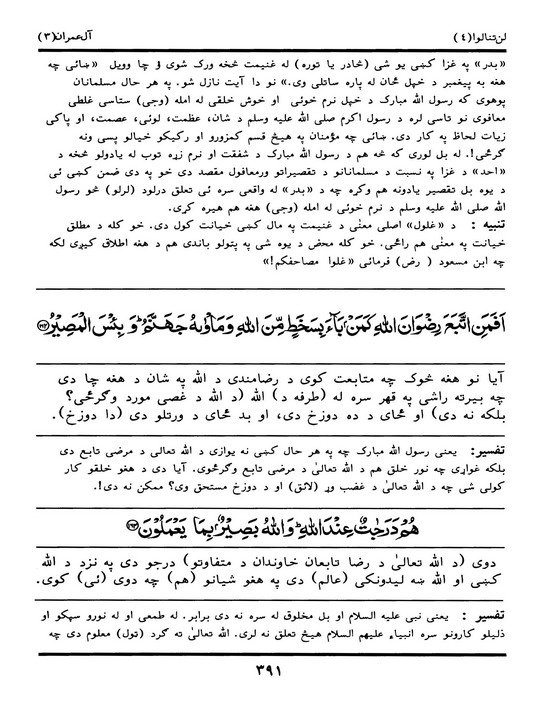 لن تنالوا (٤) آل عمران (٣)
«بدر» په غزا کښی یو شی (څادر یا توره) له غنیمت څخه ورک شوی ؤ چا وویل «ښائی چه
هغه به پیغمبر د خپل ځان له پاره ساتلی وی.» نو دا آیت نازل شو. په هر حال مسلمانان
پوهوی که رسول الله مبارک د خپل نرم خوئی او خوش خلقی له امله (وجی) ستاسی غلطی
معافوی نو تاسی لره د رسول اکرم صلی الله علیه وسلم د شان، عظمت، لوئی، عصمت، او پاکی
زیات لحاظ په کار دی. ښائی چه مؤمنان په هیڅ قسم کمزورو او رکیکو خیالو پسی ونه
گرځی!. له بل لوری که څه هم د رسول الله مبارک د شفقت او نرم زړه توب له یادولو څخه د
«احد» د غزا په نسبت د مسلمانانو د تقصیراتو ورمعافول مقصد دی خو په دی ضمن کښی ئی
د یوه بل تقصیر یادونه هم وکړه چه د «بدر» له واقعی سره ئی تعلق درلود (لرلو) څو رسول
الله صلی الله علیه وسلم د نرم خوئی له امله (وجی) هغه هم هیره کړی.
تنبیه : د «غلول» اصلی معنٰی د غنیمت په مال کښی خیانت کول دی. خو کله د مطلق
خیانت په معنٰی هم راځی. خو کله محض د یوه شی په پتولو باندی هم د هغه اطلاق کیږی لکه
چه ابن مسعود ( رض) فرمائی «غلوا مصاحفکم!»
اَفَمَنِ اتَّبَعَ رِضْوَانَ اللهِ كَمَنْۢ بَآءَ بِسَخَطٍ مِّنَ اللهِ وَمَأْوٰىهُ جَهَنَّمُ ؕ وَ بِئْسَ الْمَصِيْرُ ﴿۱۶۲﴾
آیا نو هغه څوک چه متابعت کوی د رضامندی د الله په شان د هغه چا دی
چه بیرته راشی په قهر سره له (طرفه د) الله (د الله د غصی مورد وگرځی؟
بلکه نه دی) او ځای د ده دوزخ دی، او بد ځای د ورتلو دی (دا دوزخ).
تفسیر : یعنی رسول الله مبارک چه په هر حال کښی نه یوازی د الله تعالی د مرضی تابع دی
بلکه غواړی چه نور خلق هم د الله تعالیٰ د مرضی تابع وگرځوی. آیا دی د هغو خلقو کار
کولی شی چه د الله تعالیٰ د غضب وړ (لائق) او د دوزخ مستحق وی؟ ممکن نه دی!.
هُمْ دَرَجٰتٌ عِنْدَ اللهِ ؕ وَاللهُ بَصِيْرٌۢ بِمَا يَعْمَلُوْنَ ﴿۱۶۳﴾
دوی (د الله تعالیٰ د رضا تابعان خاوندان د متفاوتو) درجو دی په نزد د الله
کښی او الله ښه لیدونکی (عالم) دی په هغو شیانو (هم) چه دوی (ئی) کوی.
تفسیر : یعنی نبی علیه السلام او بل مخلوق له سره نه دی برابر. له طمعی او له نورو سپکو او
ذلیلو کارونو سره انبیاء علیهم السلام هیڅ تعلق نه لری. الله تعالیٰ ته گرد (تول) معلوم دی چه
٣٩١